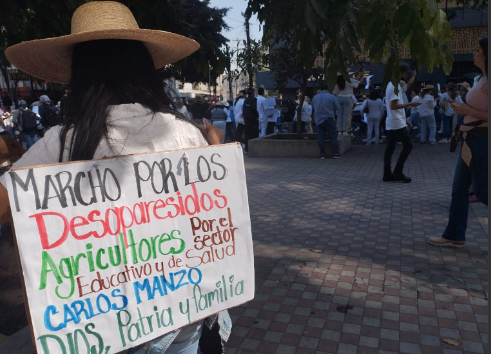 MARCHO POR LOS
Desaparesidos
Agricultores Por el
sector
Educativo y de Salud
CARLOS MANZO
DIOS, Patria y familia